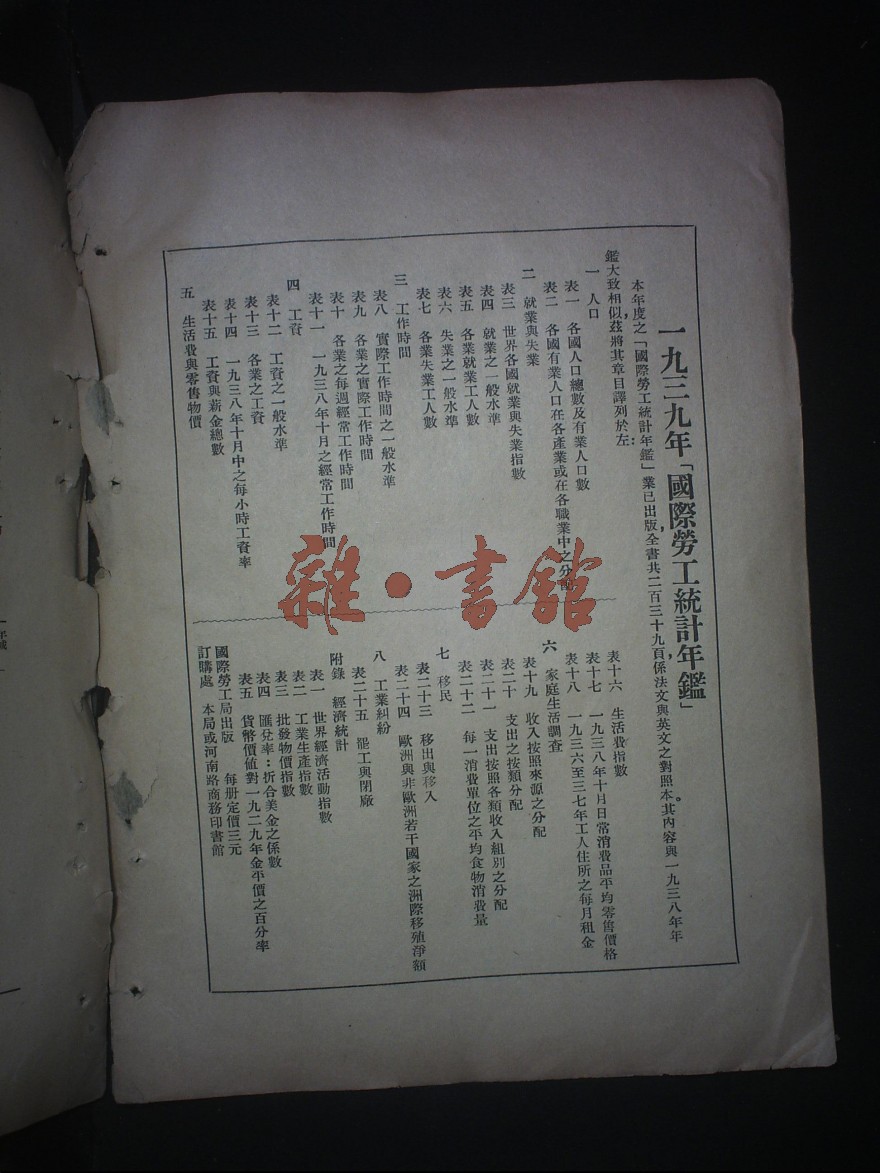 一九三九年「國際勞工統計年鑑」
本年度之「國際勞工統計年鑑」業已出版，全書共二百三十九頁，係法文與英文之對照本。其內容與一九三八年年
鑑大致相似，茲將其章目譯列於左：
一　人口
表一　各國人口總數及有業人口數
表二　各國有業人口在各產業或在各職業中之分配
二　就業與失業
表三　世界各國就業與失業指數
表四　就業之一般水準
表五　各業就業工人數
表六　失業之一般水準
表七　各業失業工人數
三　工作時間
表八　實際工作時間之一般水準
表九　各業之實際工作時間
表十　各業之每週經常工作時間
表十一　一九三八年十月之經常工作時間
四　工資
表十二　工資之一般水準
表十三　各業之工資
表十四　一九三八年十月中之每小時工資率
表十五　工資與薪金總數
五　生活費與零售物價
表十六　生活費指數
表十七　一九三八年十月日常消費品平均零售價格
表十八　一九三六至三七年工人住所之每月租金
六　家庭生活調查
表十九　收入按照來源之分配
表二十　支出之按類分配
表二十一　支出按照各類收入組別之分配
表二十二　每一消費單位之平均食物消費量
七　移民
表二十三　移出與移入
表二十四　歐洲與非歐洲若干國家之洲際移殖淨額
八　工業糾紛
表二十五　罷工與閉廠
附錄　經濟統計
表一　世界經濟活動指數
表二　工業生產指數
表三　批發物價指數
表四　匯兌率：折合美金之係數
表五　貨幣價值對一九二九年金平價之百分率
國際勞工局出版　每册定價三元
訂購處　本局或河南路商務印書館
雜·書館